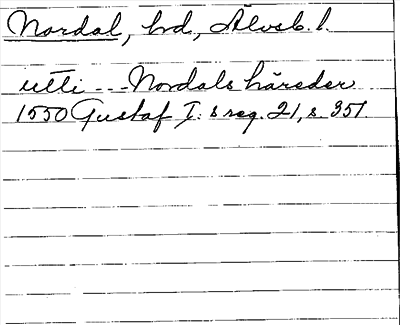 Nordal, hd, Älvsb. l.
utti --- Nordals häreder
1550 Gustaf I:s reg. 21, s. 351.